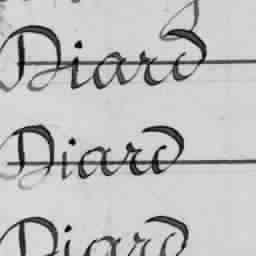 Diard
Diard
Diard